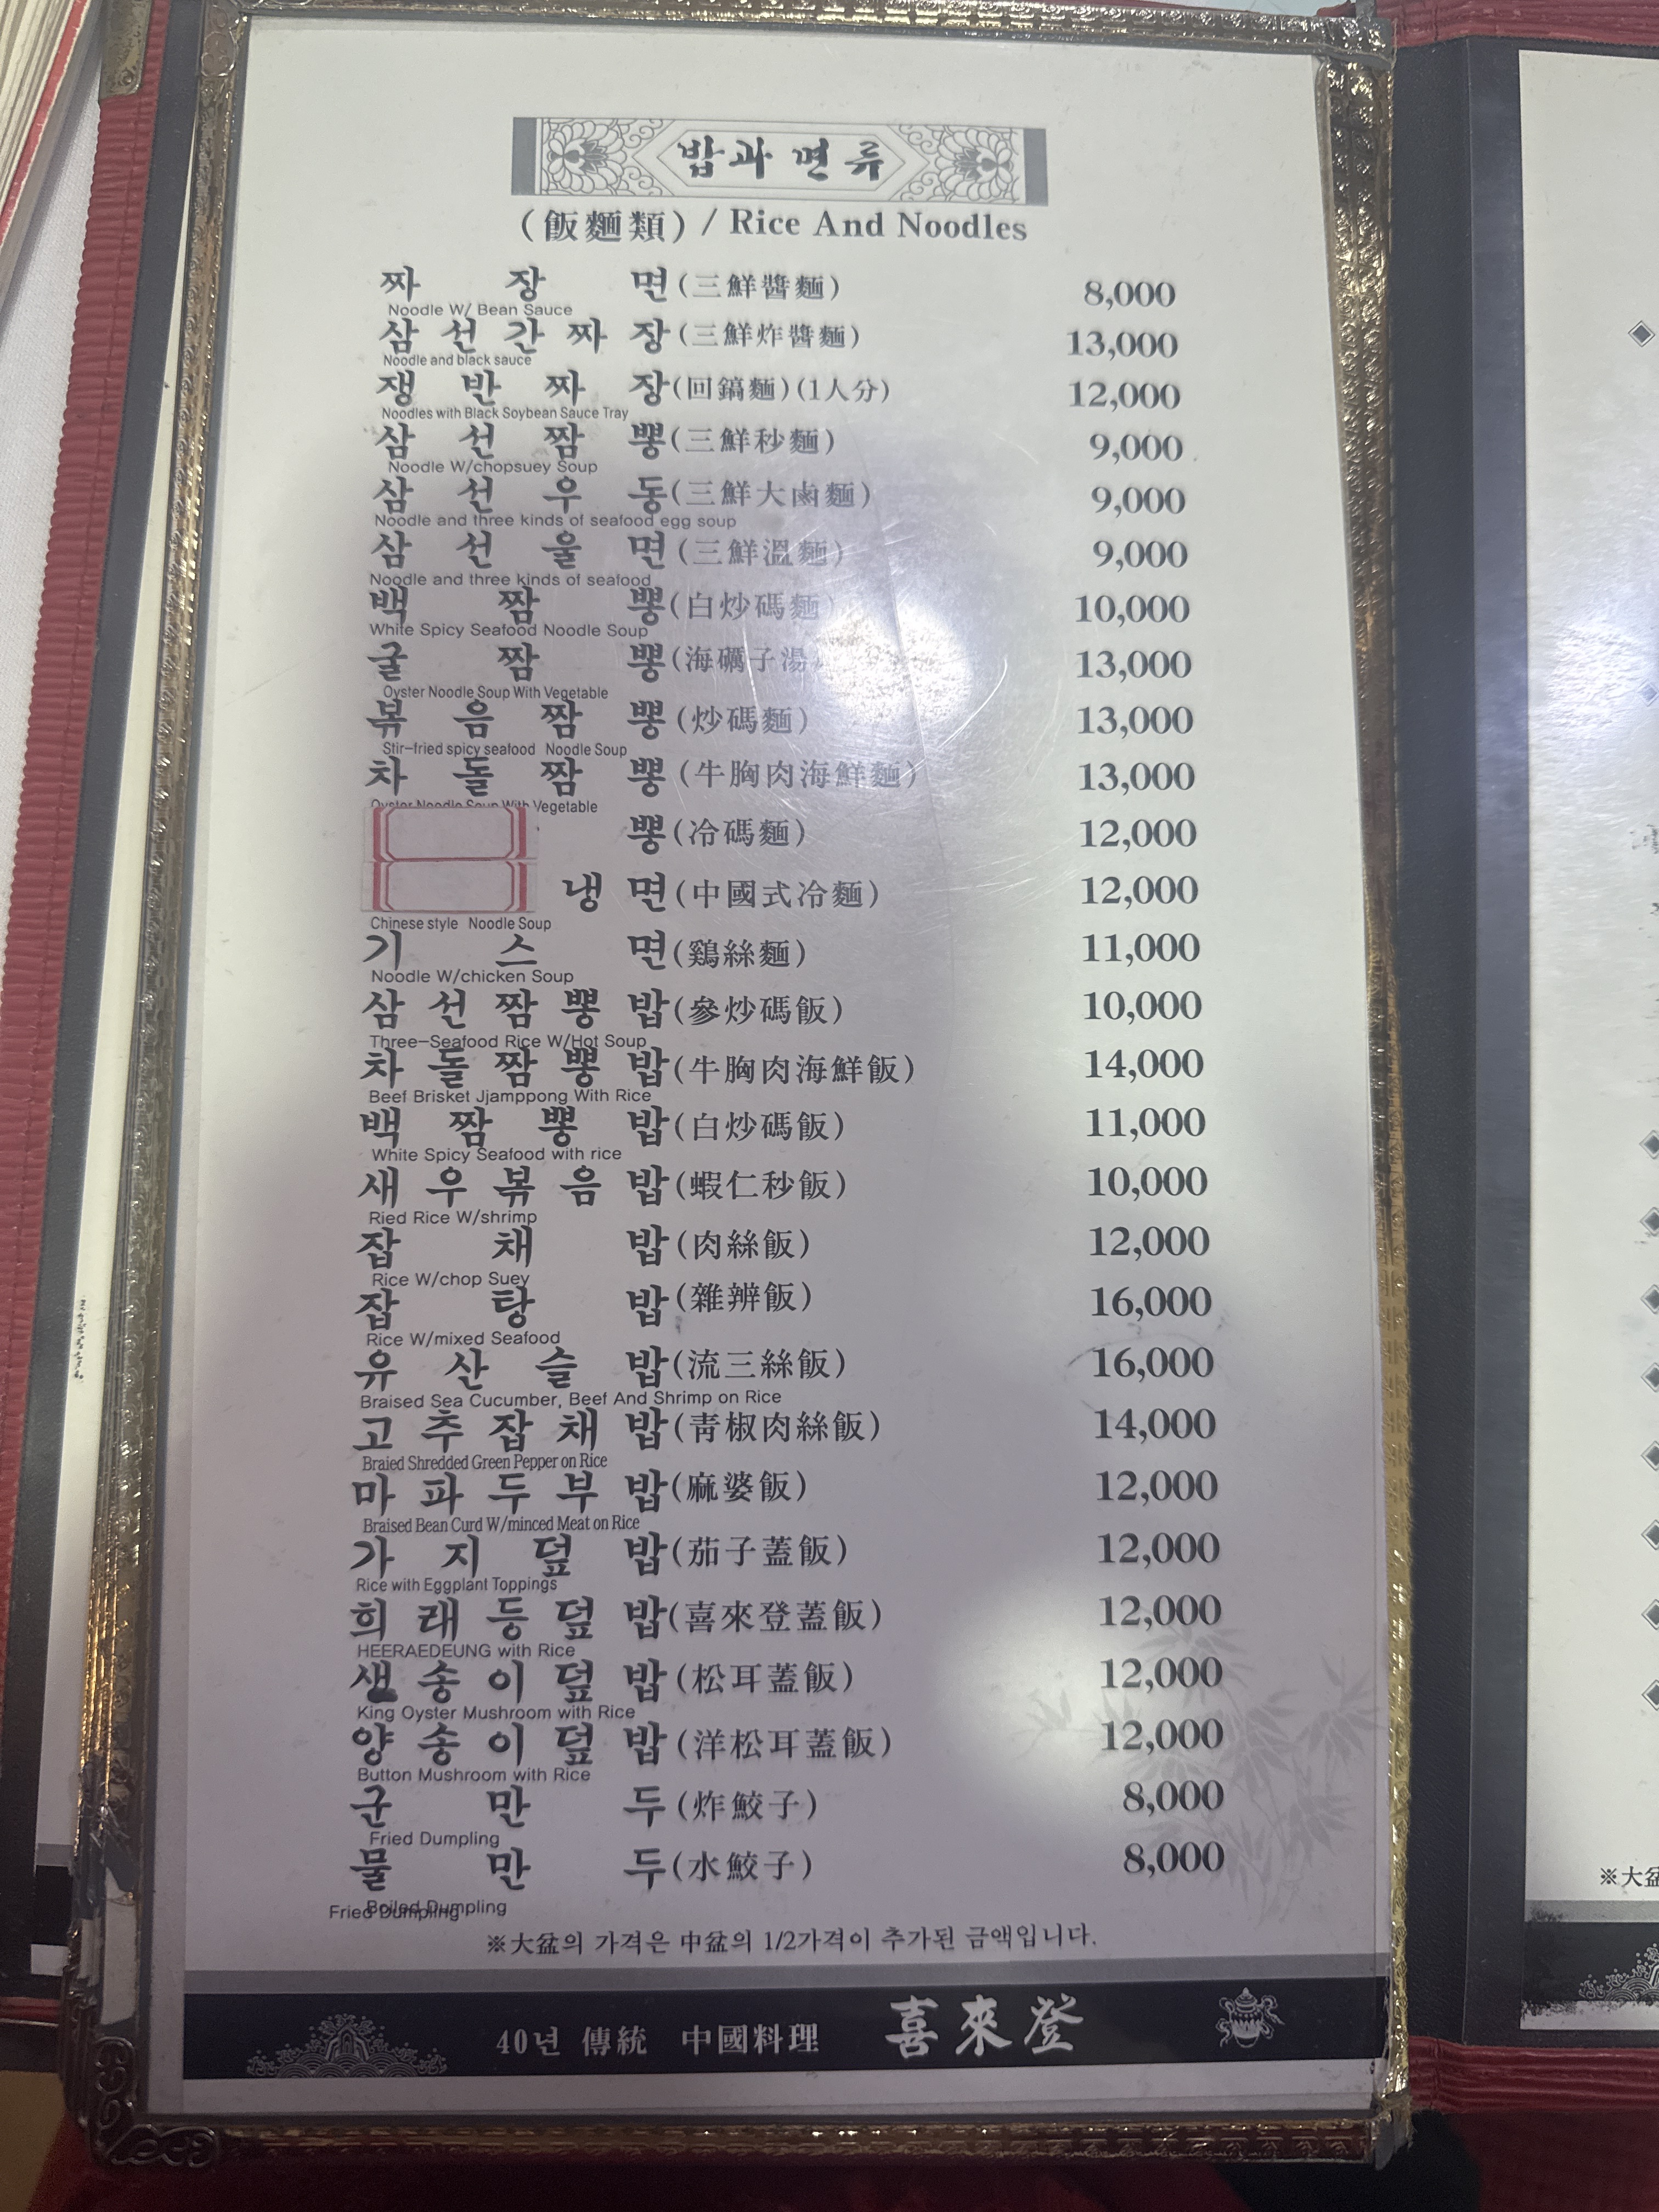 밥과 면류
(飯麵類) / Rice And Noodles
짜장면 (三鮮醬麵) 8,000
Noodle W/ Bean Sauce
삼선간짜장 (三鮮炸醬麵) 13,000
Noodle and black sauce
쟁반짜장 (回鎬麵) (1人分) 12,000
Noodles with Black Soybean Sauce Tray
삼선짬뽕 (三鮮秒麵) 9,000
Noodle W/chopsuey Soup
삼선우동 (三鮮大鹵麵) 9,000
Noodle and three kinds of seafood egg soup
삼선울면 (三鮮溫麵) 9,000
Noodle and three kinds of seafood
백짬뽕 (白炒碼麵) 10,000
White Spicy Seafood Noodle Soup
굴짬뽕 (海礪子湯 13,000
Oyster Noodle Soup With Vegetable
볶음짬뽕 (炒碼麵) 13,000
Stir-fried spicy seafood Noodle Soup
차돌짬뽕 (牛胸肉海鮮麵) 13,000
Oyster Noodle Soup With Vegetable
뽕 (冷碼麵) 12,000
냉면 (中國式冷麵) 12,000
Chinese style Noodle Soup
기스면 (鷄絲麵) 11,000
Noodle W/chicken Soup
삼선짬뽕밥 (參炒碼飯) 10,000
Three-Seafood Rice W/Hot Soup
차돌짬뽕밥 (牛胸肉海鮮飯) 14,000
Beef Brisket Jjamppong With Rice
백짬뽕밥 (白炒碼飯) 11,000
White Spicy Seafood with rice
새우볶음밥 (蝦仁秒飯) 10,000
Ried Rice W/shrimp
잡채밥 (肉絲飯) 12,000
Rice W/chop Suey
잡탕밥 (雜辨飯) 16,000
Rice W/mixed Seafood
유산슬밥 (流三絲飯) 16,000
Braised Sea Cucumber, Beef And Shrimp on Rice
고추잡채밥 (靑椒肉絲飯) 14,000
Braied Shredded Green Pepper on Rice
마파두부밥 (麻婆飯) 12,000
Braised Bean Curd W/minced Meat on Rice
가지덮밥 (茄子蓋飯) 12,000
Rice with Eggplant Toppings
희래등덮밥 (喜來登蓋飯) 12,000
HEERAEDEUNG with Rice
새송이덮밥 (松耳蓋飯) 12,000
King Oyster Mushroom with Rice
양송이덮밥 (洋松耳蓋飯) 12,000
Button Mushroom with Rice
군만두 (炸鮫子) 8,000
Fried Dumpling
물만두 (水鮫子) 8,000
Boiled Dumpling
Fried Dumpling
※大盆의 가격은 中盆의 1/2가격이 추가된 금액입니다.
40년 傳統 中國料理 喜來登
※大盆